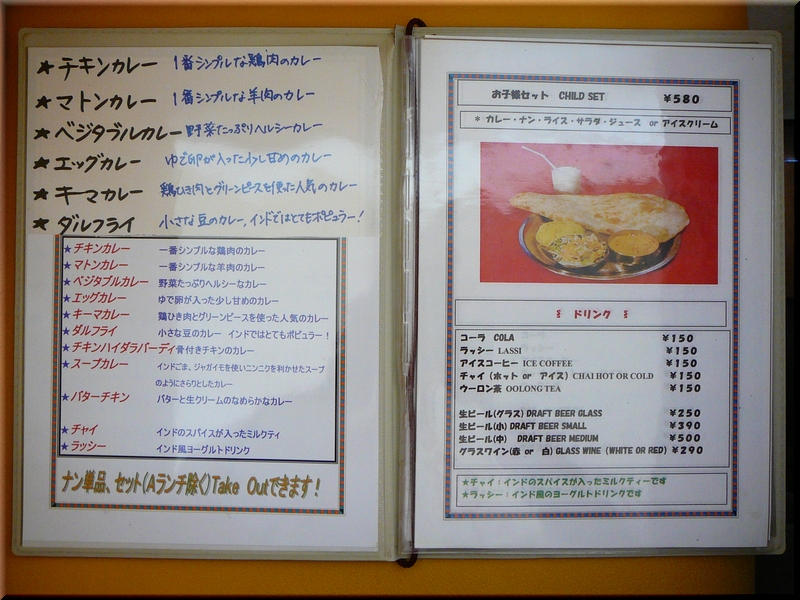 ★チキンカレー 1番シンプルな鶏肉のカレー
★マトンカレー 1番シンプルな羊肉のカレー
★ベジタブルカレー 野菜たっぷりヘルシーカレー
★エッグカレー ゆで卵が入った少し甘めのカレー
★キーマカレー 鶏ひき肉とグリーンピースを使った人気のカレー
★ダルフライ 小さな豆のカレー,インドではとてもポピュラー!
★チキンカレー 一番シンプルな鶏肉のカレー
★マトンカレー 一番シンプルな羊肉のカレー
★ベジタブルカレー 野菜たっぷりヘルシーなカレー
★エッグカレー ゆで卵が入った少し甘めのカレー
★キーマカレー 鶏ひき肉とグリーンピースを使った人気のカレー
★ダルフライ 小さな豆のカレー インドではとてもポピュラー!
★チキンハイダラバーディ 骨付きチキンのカレー
★スープカレー インドごま、ジャガイモを使いニンニクを利かせたスープ
のようにさらりとしたカレー
★バターチキン バターと生クリームのなめらかなカレー
★チャイ インドのスパイスが入ったミルクティ
★ラッシー インド風ヨーグルトドリンク
ナン単品、セット(Aランチ除く)Take Outできます!
お子様セット CHILD SET ¥580
* カレー・ナン・ライス・サラダ・ジュース or アイスクリーム
ドリンク
コーラ COLA ¥150
ラッシー LASSI ¥150
アイスコーヒー ICE COFFEE ¥150
チャイ(ホット or アイス) CHAI HOT OR COLD ¥150
ウーロン茶 OOLONG TEA ¥150
生ビール(グラス) DRAFT BEER GLASS ¥250
生ビール(小) DRAFT BEER SMALL ¥390
生ビール(中) DRAFT BEER MEDIUM ¥500
グラスワイン(赤 or 白) GLASS WINE (WHITE OR RED) ¥290
★チャイ:インドのスパイスが入ったミルクティーです
★ラッシー:インド風のヨーグルトドリンクです